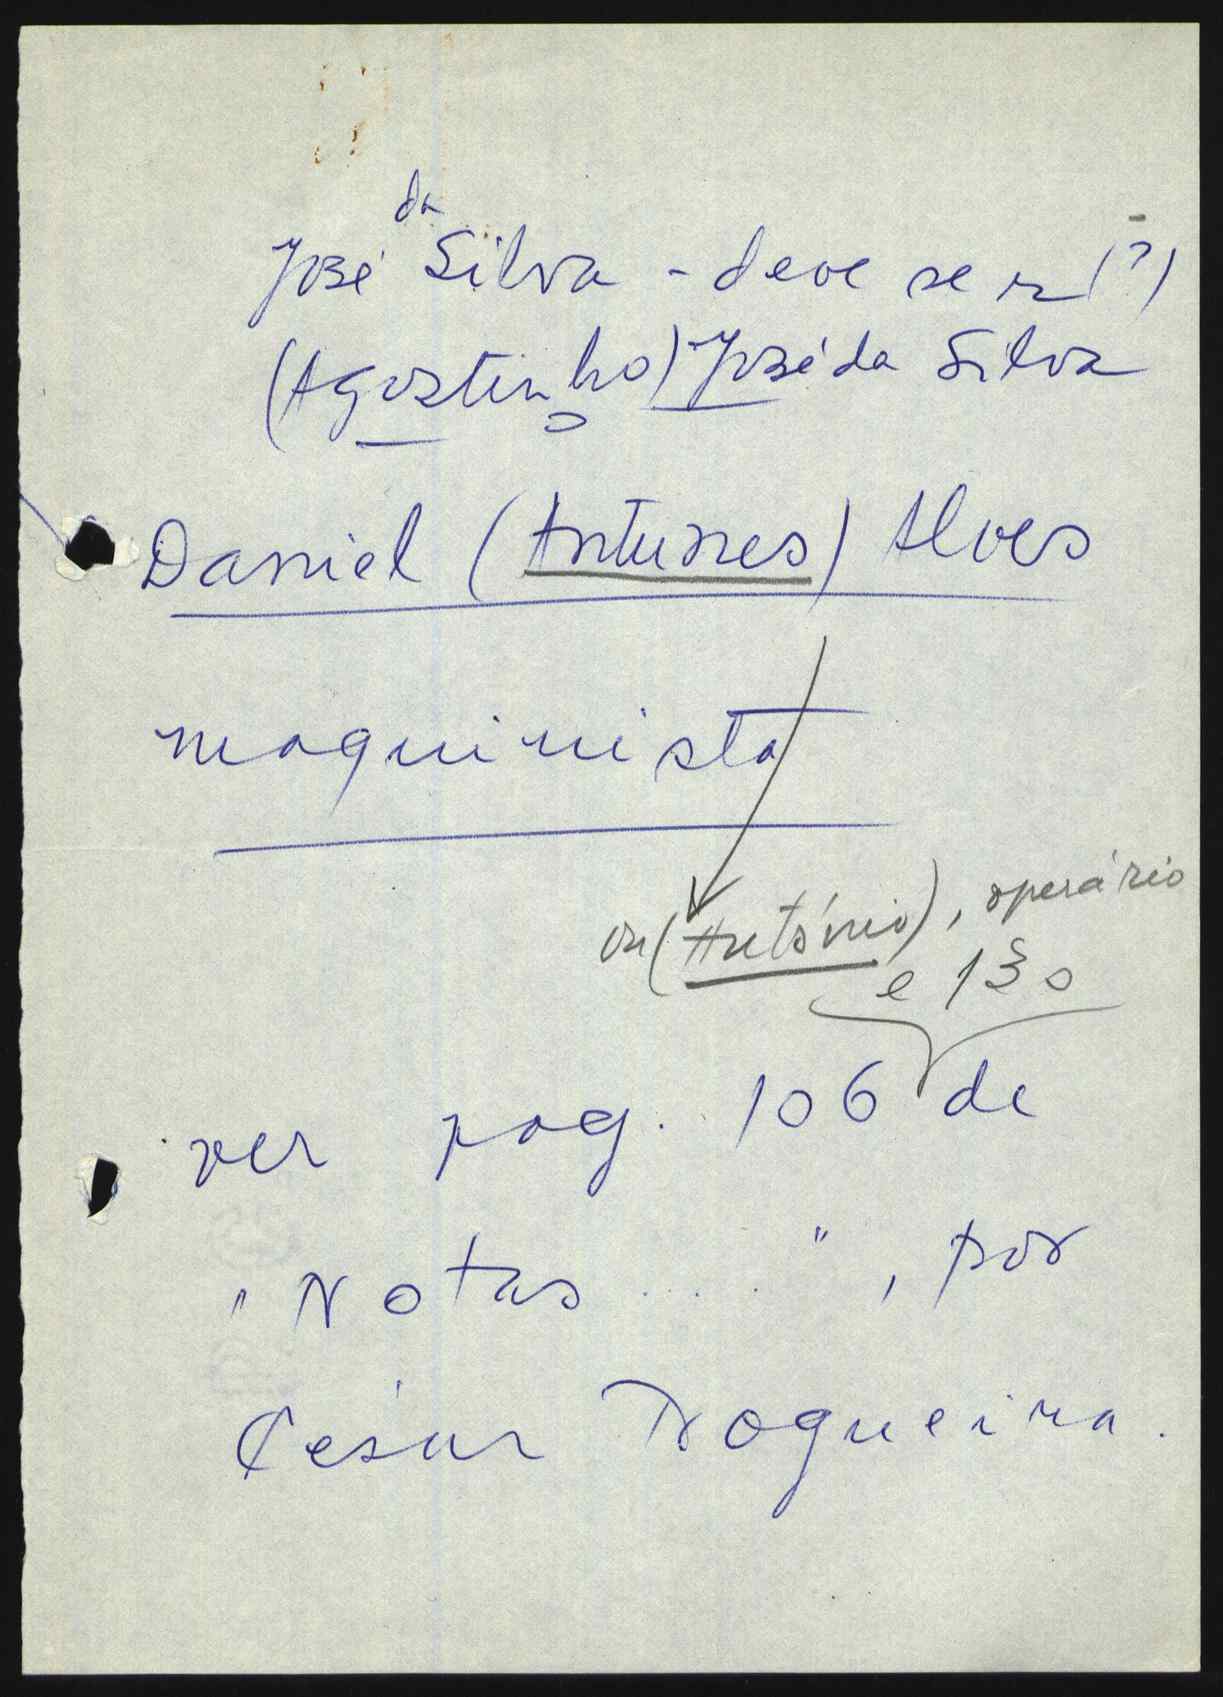 José da Silva - deve ser (?)
(Agostinho) José da Silva
Daniel (Antunes) Alves
maquinista
ou (António), operário
e 130
ver pag. 106 de
"Notas .... ", por
César Nogueira.